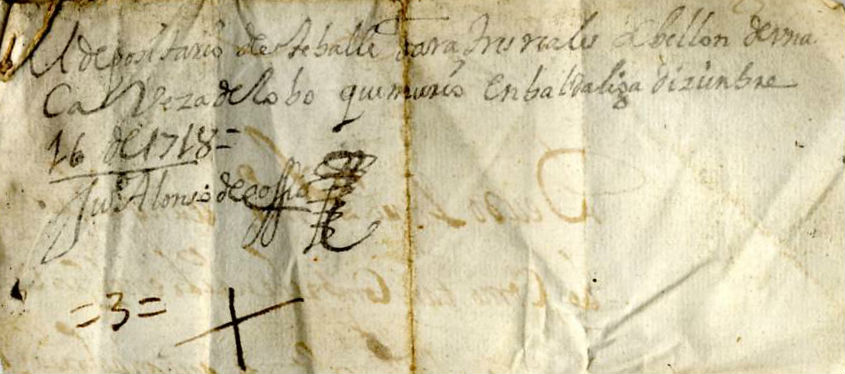 El depositario deste balle dara tres reales de bellon de una
Caveza de lobo que murio en baldaliga dizienbre
16 de 1718=
Juº Alonso de cossio
=3=